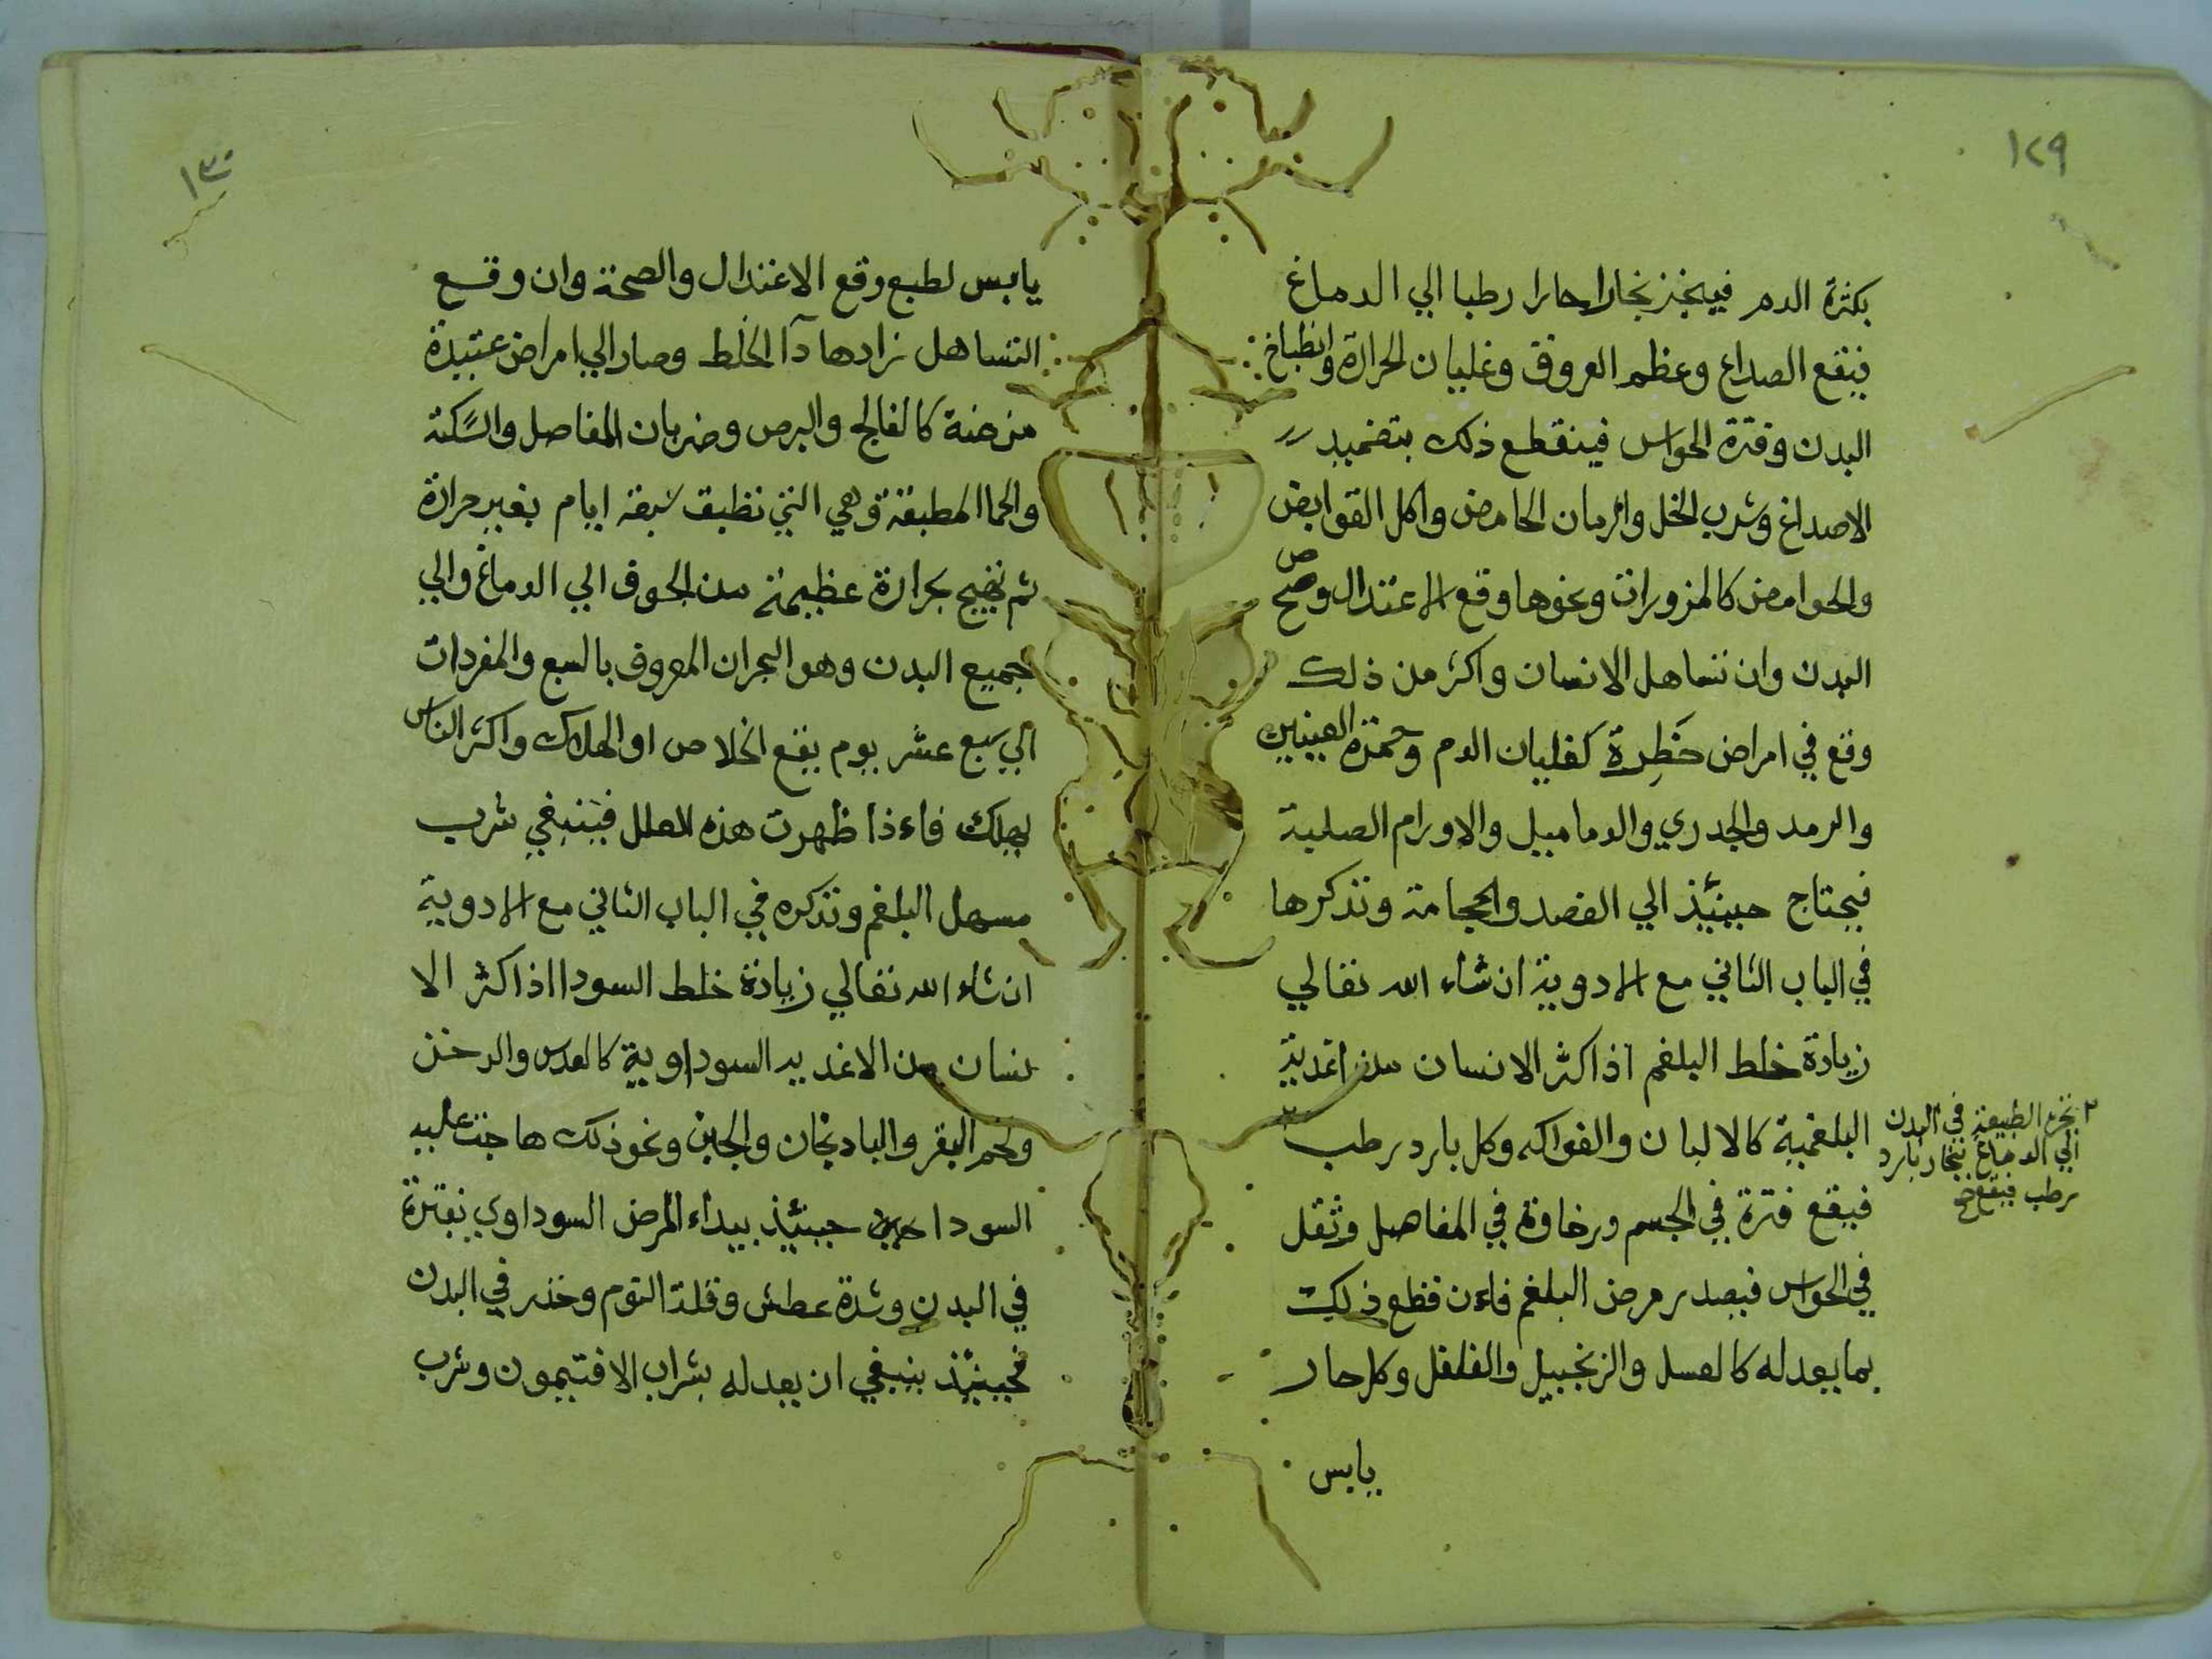 ١٢٩
بكثرة الدم فيبخر بخارا حارا رطبا الي الدماغ
فيقع الصداع وعظم العروق وغليان الحرارة وانطباخ
البدن وفترة الحواس فينقطع ذلك بتضميد
الاصداغ وشرب الخل والرمان الحامض واكل القوابض
والحوامض كالمزورات ونحوها وقع الاعتدال وصح
البدن وان تساهل الانسان واكثر من ذلك
وقع في امراض خَطِرة كغليان الدم وحمرة العينين
والرمد والجدري والدماميل والاورام الصلبة
فيحتاج حينئذ الي الفصد والحجامة ونذكرها
في الباب الثاني مع الادوية ان شاء الله تعالي
زيادة خلط البلغم اذا اكثر الانسان من اغدية
البلغمية كالالبان والفواكه وكل بارد رطب ٢
٢ بخرة الطبيعة في البدن
الي الدماغ بخار بارد
رطب فيقع صح
فيقع فترة في الجسم ورخاوة في المفاصل وثقل
في الحواس فيصدر مرض البلغم فاءن قطع ذلك
بما يعدله كالعسل والزنجبيل والفلفل وكل حار
يابس
١٣٠
يابس لطبع وقع الاعتدال والصحة وان وقع
التساهل زادها دآ الخلط وصار الي امراض عتيدة
مزمنة كالفالج والبرص وضربان المفاصل والسكتة
والحما المطبقة وهي التي تطبق سبعة ايام بغير حرارة
ثم تهيج بحرارة عظيمة من الجوف الي الدماغ والي
جميع البدن وهو البحران المعروف بالسبع والمفردات
الي سبع عشر يوم يقع الخلاص او الهلاك واكثر الناس
يهلك فاءذا ظهرت هذه العلل فينبغي شرب
مسهل البلغم ونذكره في الباب الثاني مع الادوية
ان شاء الله تعالي زيادة خلط السودا اذا اكثر الا
نسان من الاغديه السوداوية كالعدس والدخن
ولحم البقر والبادنجان والجبن ونحو ذلك هاجت عليه
السودا حينئذ يبداء المرض السوداوي بفترة
في البدن وشدة عطش وقلة النوم وخذر في البدن
فحينئذ ينبغي ان يعدله بشراب الافتيمون وشرب